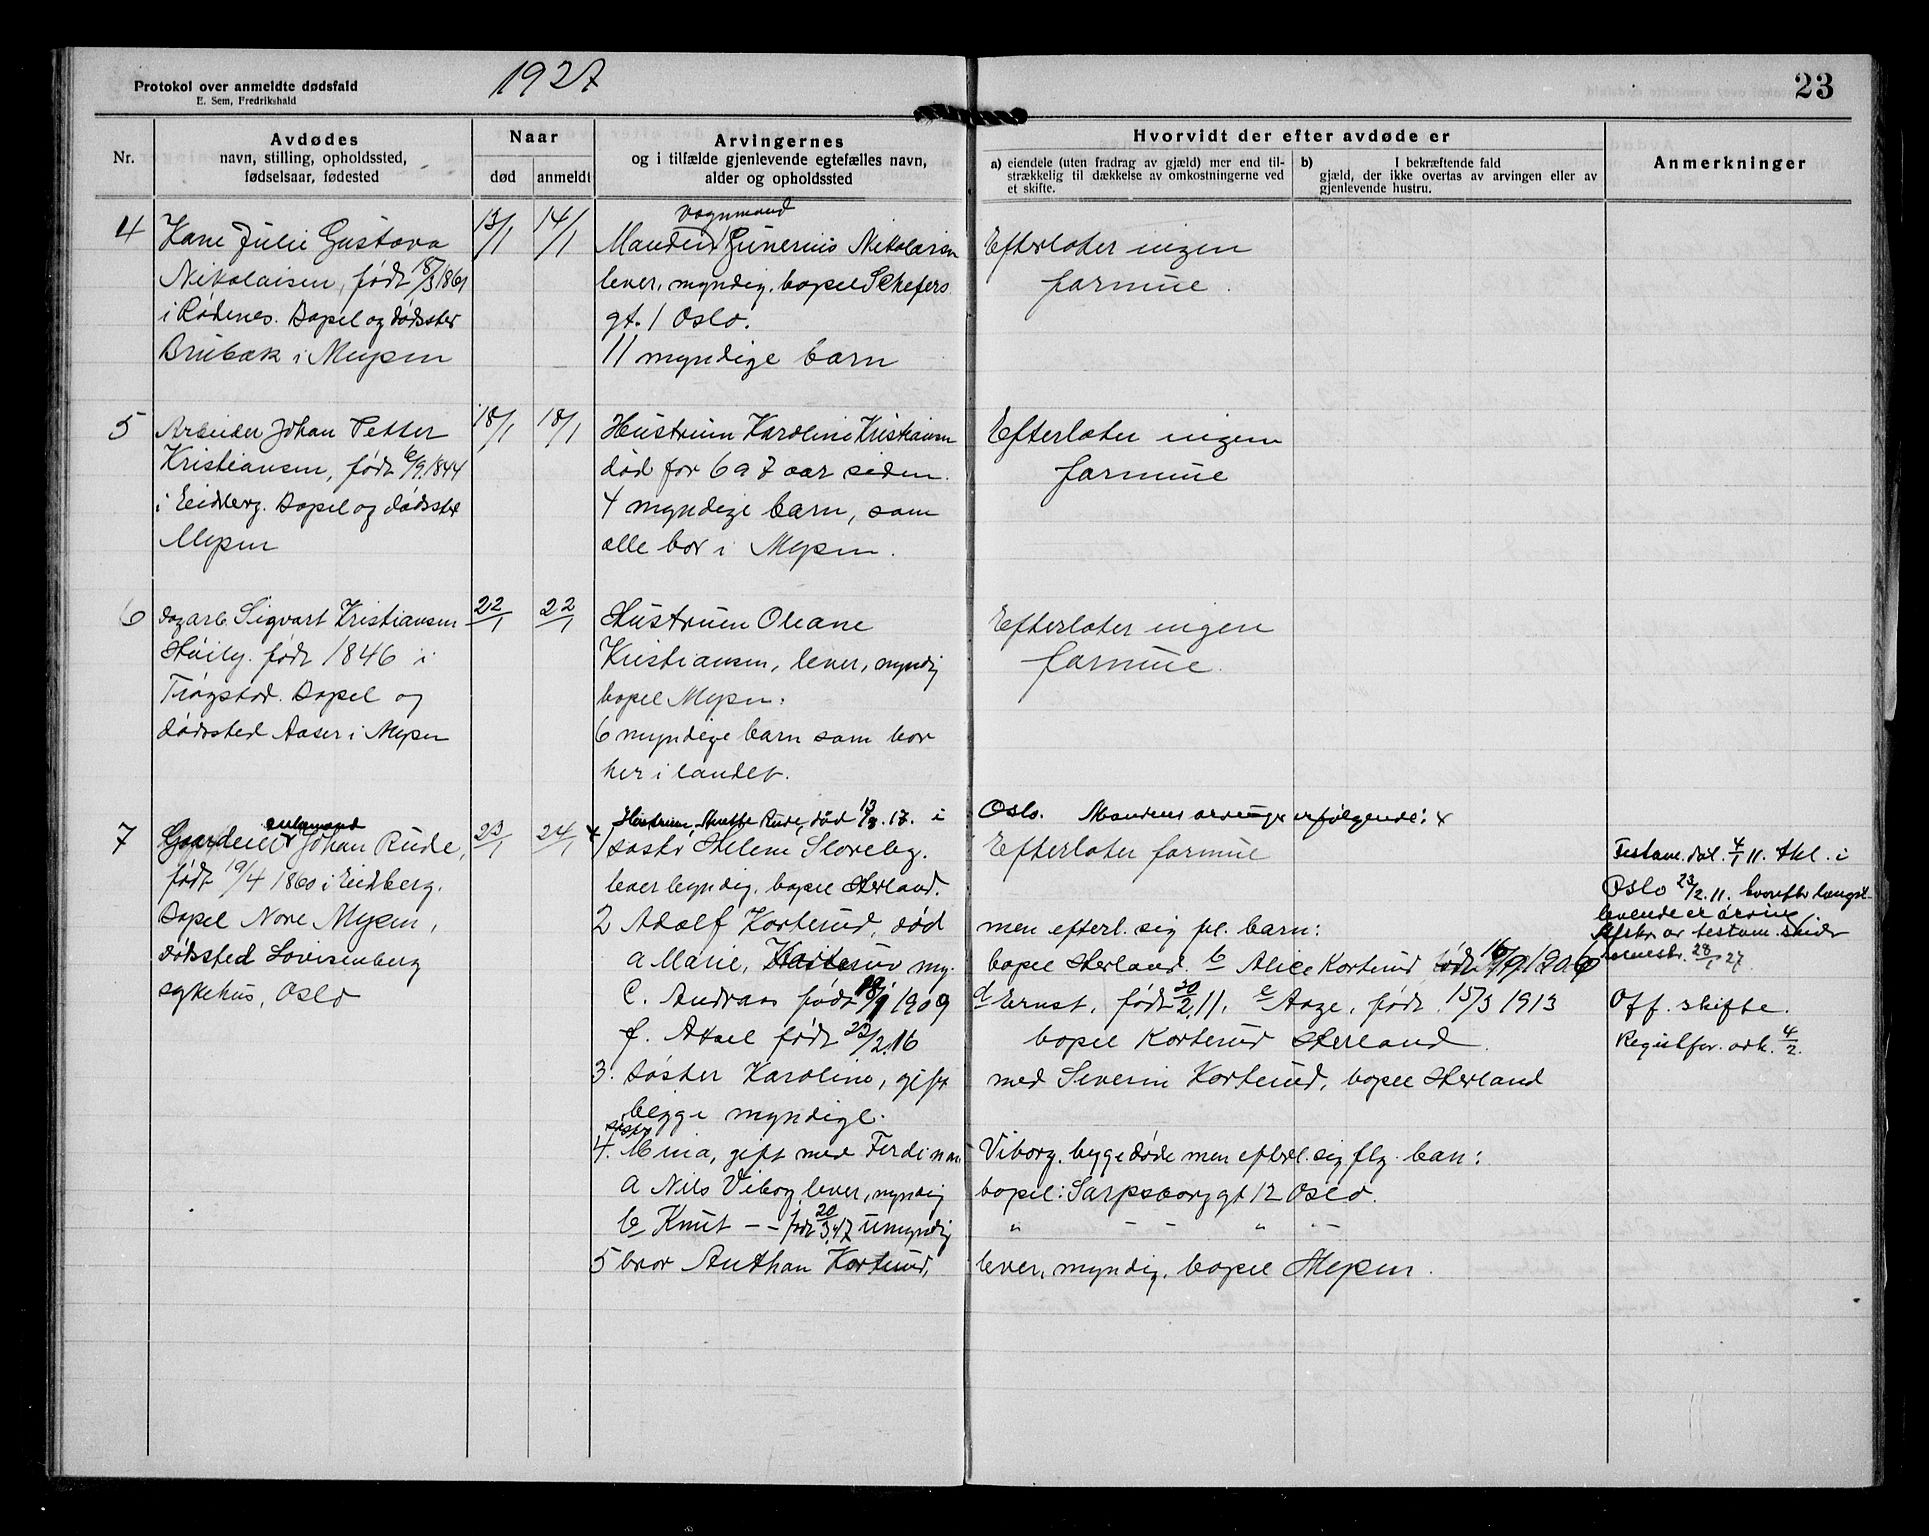 Protokol over anmeldte dødsfald
E. Sem, Fredrikshald
1927
23
Nr.
Avdødes
navn, stilling, opholdssted,
fødselsaar, fødested
Naar
død
anmeldt
Arvingernes
og i tilfælde gjenlevende egtefælles navn,
alder og opholdssted
Hvorvidt der efter avdøde er
a) eiendele (uten fradrag av gjæld) mer end til-
strækkelig til dækkelse av omkostningerne ved
et skifte.
b) I bekræftende fald
gjæld, der ikke overtas av arvingen eller av
gjenlevende hustru.
Anmerkninger
4
Julie Gustava
Nikolaisen, født 18/3 1861
i Rødenes. Bopel og dødssted
Brubæk i Mysen
13/1
14/1
vognmand
Manden Nikolaisen
lever, myndig, bopel Schefers
gt. 1 Oslo.
11 myndige barn
Efterlater ingen
formue.
5
Arbeider Johan Petter
Kristiansen, født 6/9 1844
i Eidberg. Bopel og dødssted
Mysen
18/1
18/1
Hustruen Karoline Kristiansen
død for 6 a 7 aar siden.
4 myndige barn, som
alle bor i Mysen.
Efterlater ingen
formue
6
dagarb. Sigvart Kristiansen
født 1846 i
Trøgstad. Bopel og
dødssted Aaser i Mysen
22/1
22/1
Hustruen Oleane
Kristiansen, lever, myndig
bopel Mysen.
6 myndige barn som bor
her i landet.
Efterlater ingen
formue.
7
enkemand
Gaardeier Johan Rude,
født 19/4 1860 i Eidberg.
Bopel Nore Mysen,
dødssted Lovisenberg
sykehus, Oslo
23/1
24/1
Hustruen, Anette Rude, død 13/3. 17. i Oslo. Mandens arvinger er følgende: x
x 1 søster Helene Sloreby. Efterlater formue
lever myndig, bopel Herland.
2 Adolf Korterud, død men efterl. sig fl. barn:
a Marie, Korterud my. bopel Herland. b Alice Korterud, født 16/9 1906
c. Andreas født 18/1 1909 d Ernst, født 20/2 11. e Aage, født 15/3 1913
f. Aksel født 23/2 16 bopel Korterud Herland.
3. søster Karoline, gift med Severin Korterud, bopel Herland
begge myndige.
søster
4. Mina, gift med Ferdinan Viborg. begge døde men efterl. sig flg. barn:
a Nils Viborg, lever, myndig bopel: Sarpsborggt 12 Oslo.
b Knut - - født 20/3 17 umyndig " - - " - -
5 bror Anthon Korterud, lever, myndig, bopel Mysen.
Testam. dat. 4/1 11. tkl. i
Oslo 23/2. 11. hvorefter længst-
levende er arving
Afskr. av testam. 28/1 27.
Off. skifte.
Registfor. avh. 4/2.